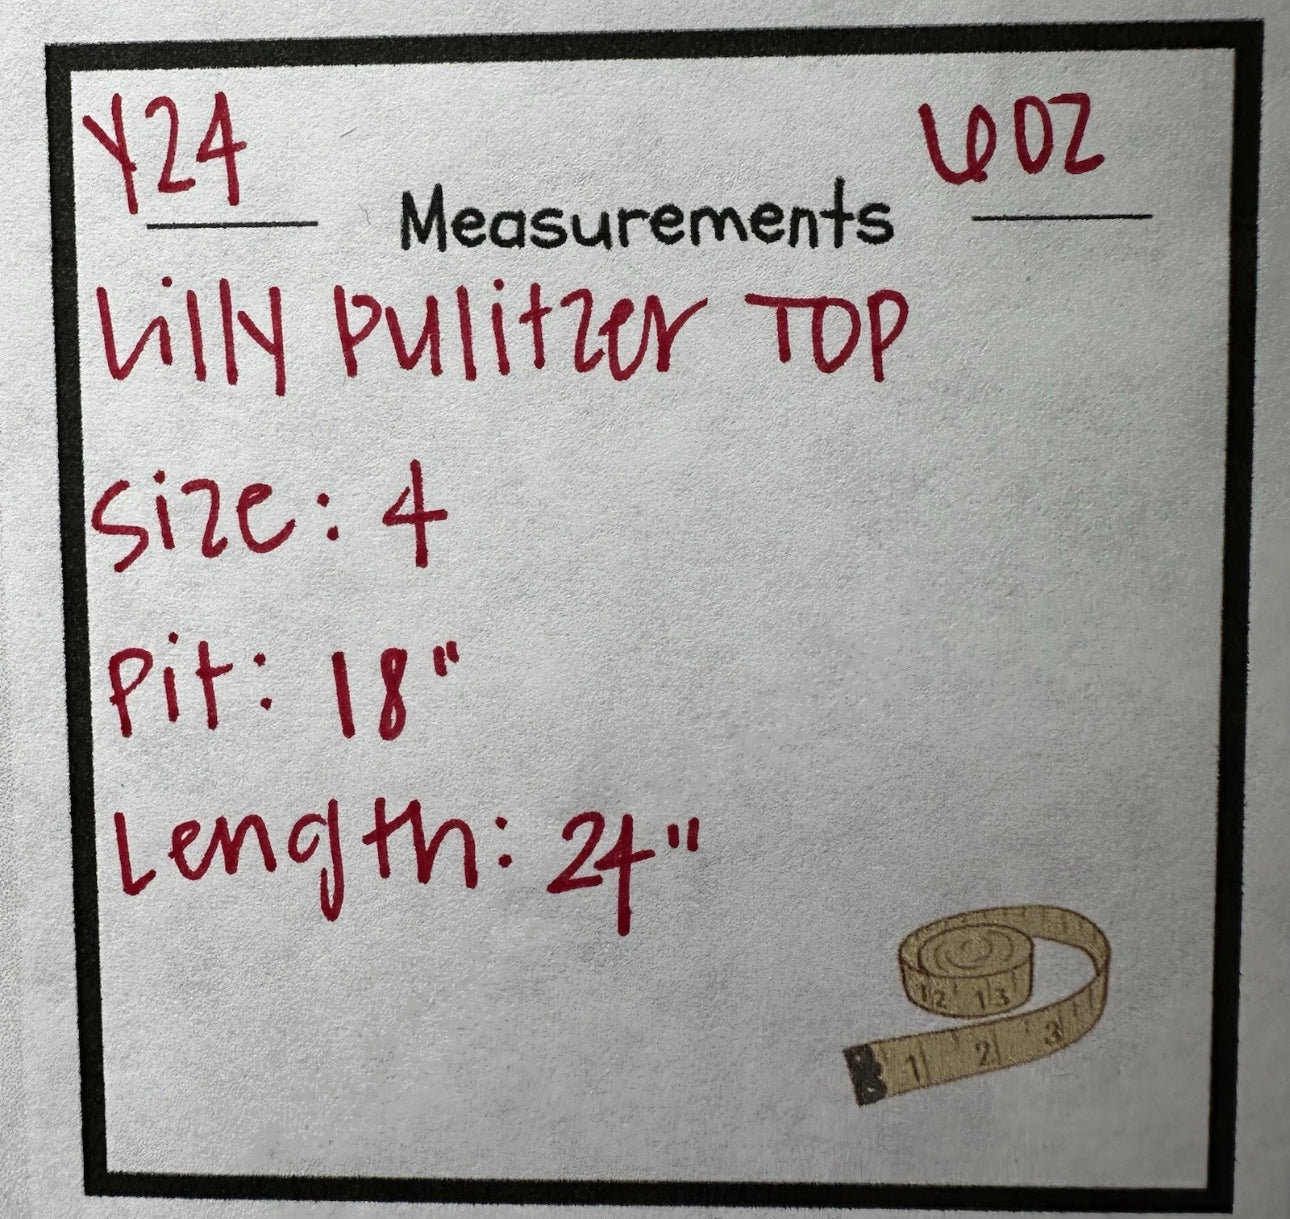 Y24 6OZ
Measurements
Lilly Pulitzer TOP
Size: 4
Pit: 18"
Length: 24"
12 13
1 2 3